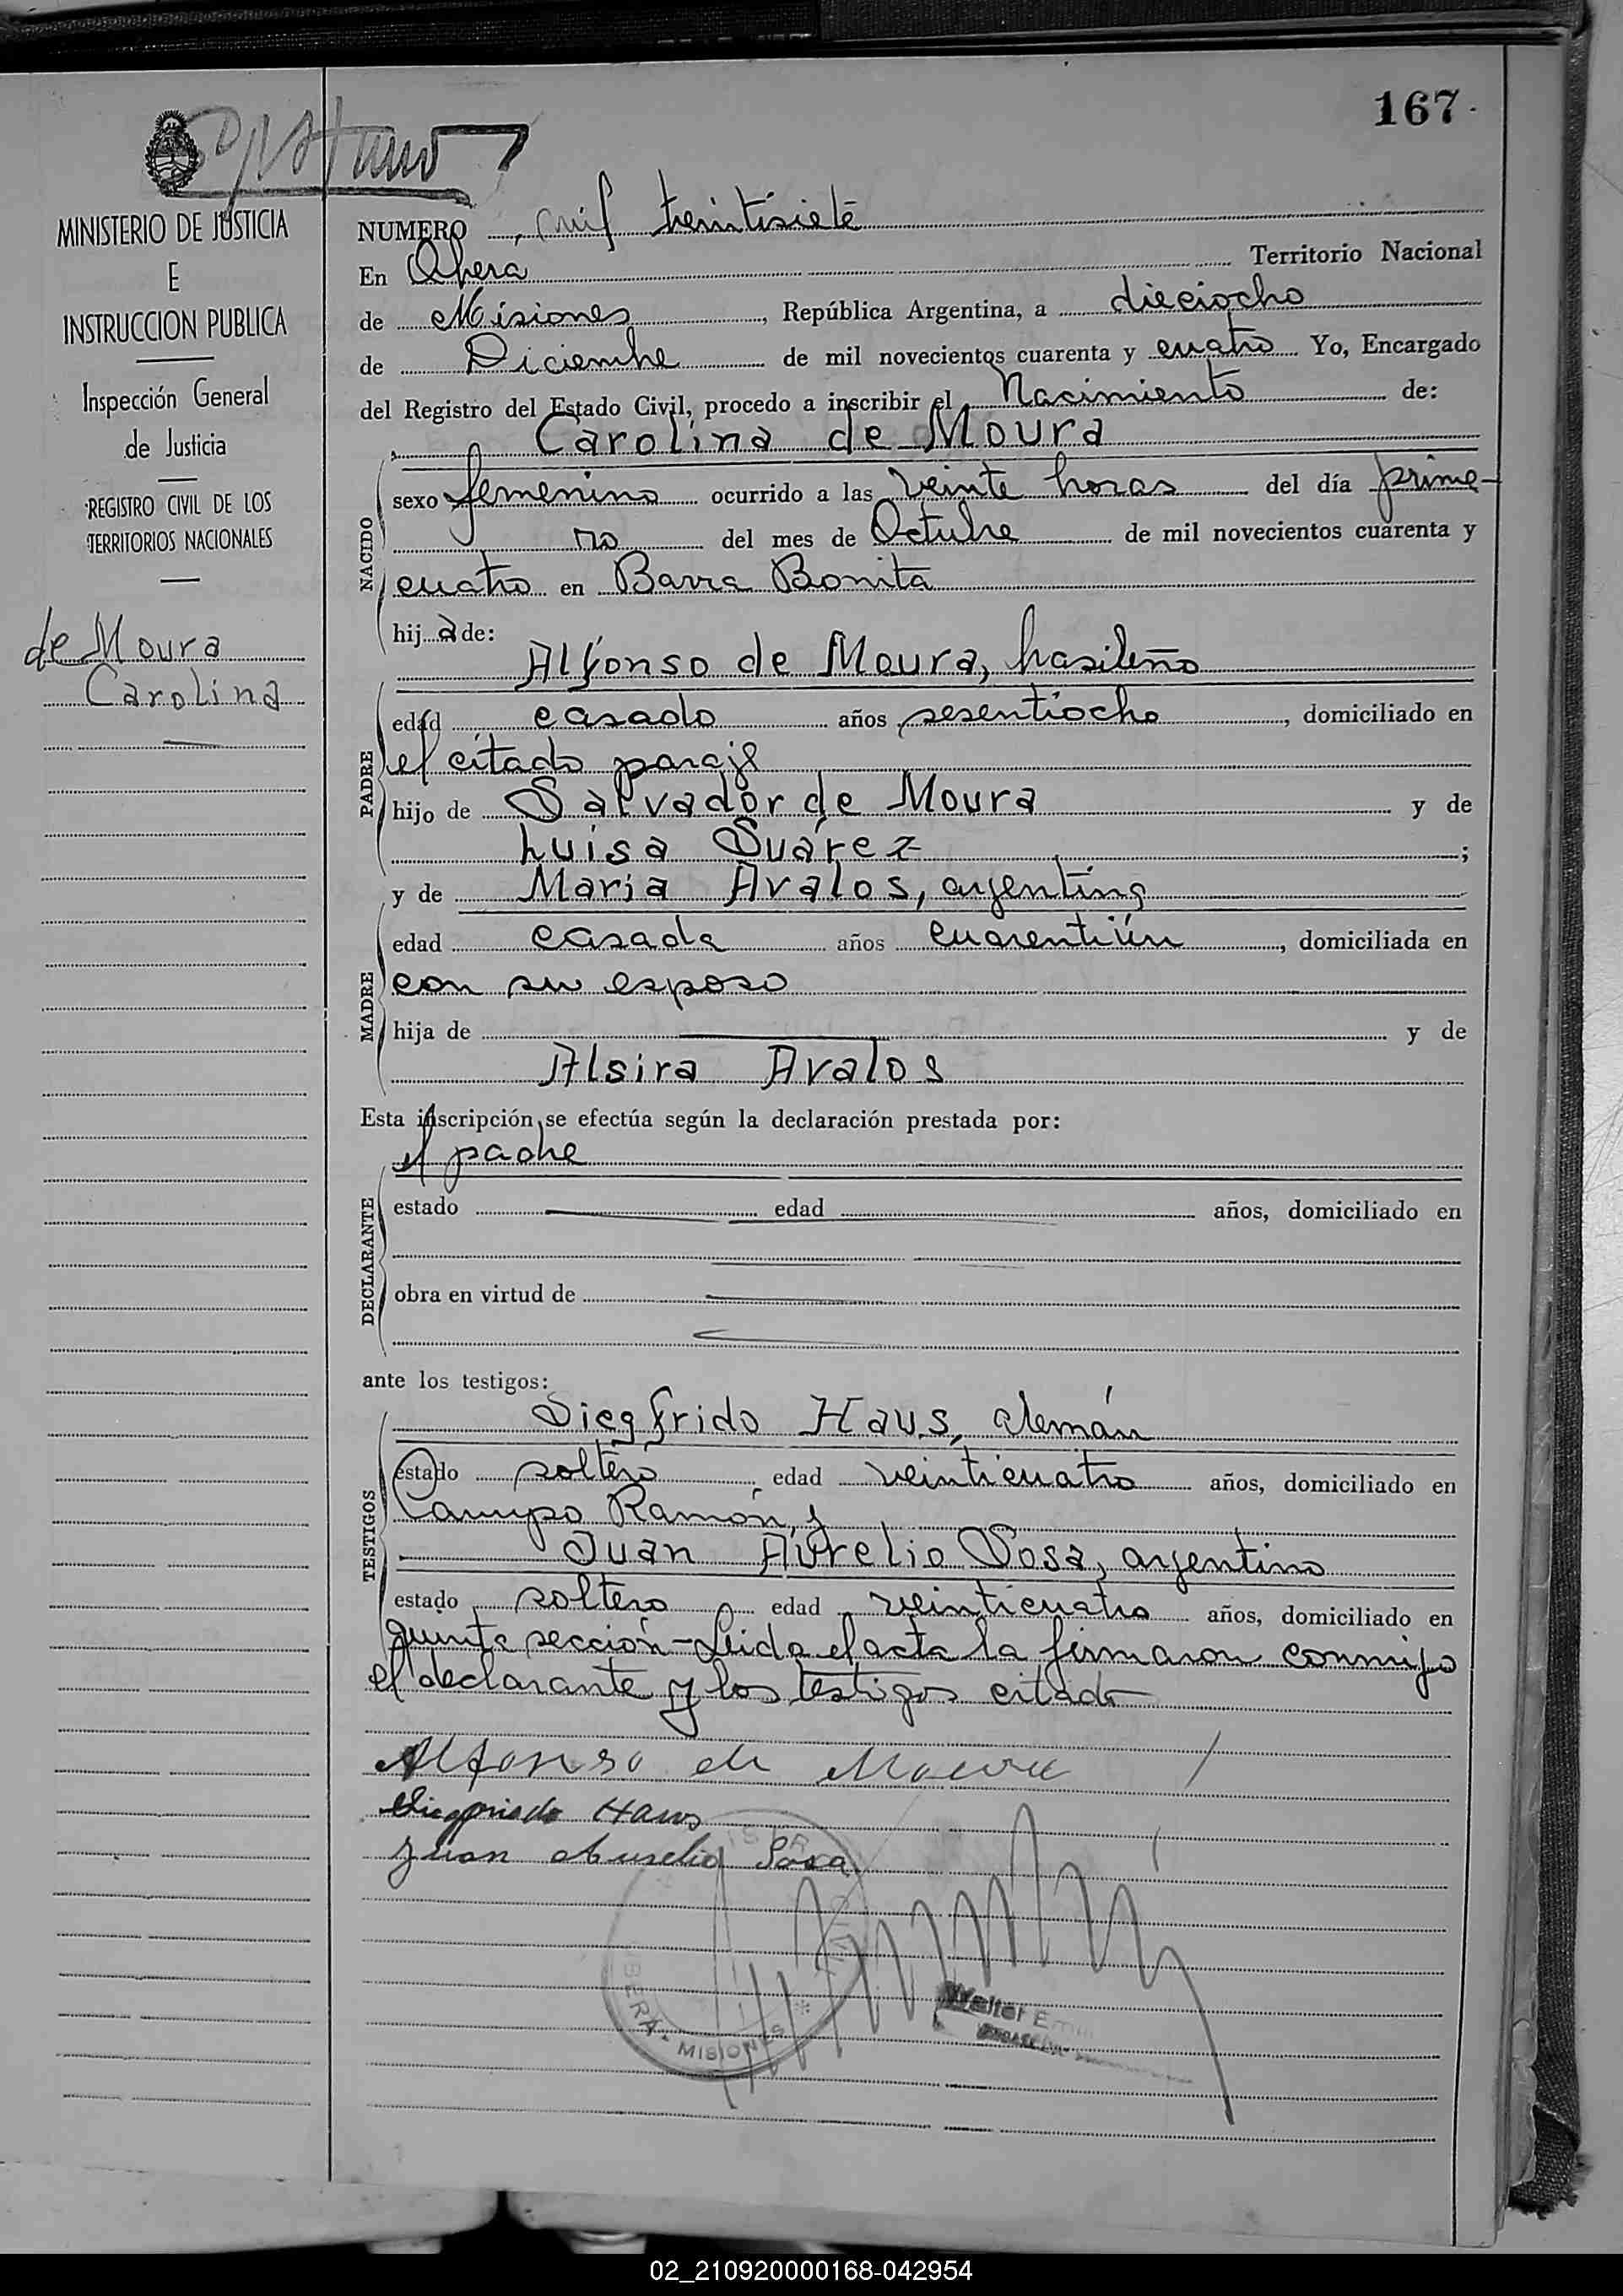 167
MINISTERIO DE JUSTICIA
E
INSTRUCCION PUBLICA
Inspección General
de Justicia
REGISTRO CIVIL DE LOS
TERRITORIOS NACIONALES
de Moura
Carolina
NUMERO mil treintisiete
En Obera Territorio Nacional
de Misiones, República Argentina, a dieciocho
de Diciembre de mil novecientos cuarenta y cuatro Yo, Encargado
del Registro del Estado Civil, procedo a inscribir el Nacimiento de:
Carolina de Moura
NACIDO
sexo femenino ocurrido a las veinte horas del día prime-
ro del mes de Octubre de mil novecientos cuarenta y
cuatro en Barra Bonita
hija de:
Alfonso de Moura, brasileño
PADRE
edad casado años sesentiocho, domiciliado en
el citado paraje
hijo de Salvador de Moura y de
Luisa Suárez;
y de Maria Avalos, argentina
MADRE
edad casada años cuarentiún, domiciliada en
con su esposo
hija de y de
Alsira Avalos
Esta inscripción se efectúa según la declaración prestada por:
el padre
DECLARANTE
estado edad años, domiciliado en
obra en virtud de
ante los testigos:
Siegfrido Haus, alemán
TESTIGOS
estado soltero edad veinticuatro años, domiciliado en
Campo Ramón, y
Juan Aurelio Sosa, argentino
estado soltero edad veinticuatro años, domiciliado en
quinta sección-Leida el acta la firmaron conmigo
el declarante y los testigos citado
Alfonso de Moura
Siegfriedo Haus
Juan Aurelio Sosa
OBERA - MISIONES
Walter
02_210920000168-042954